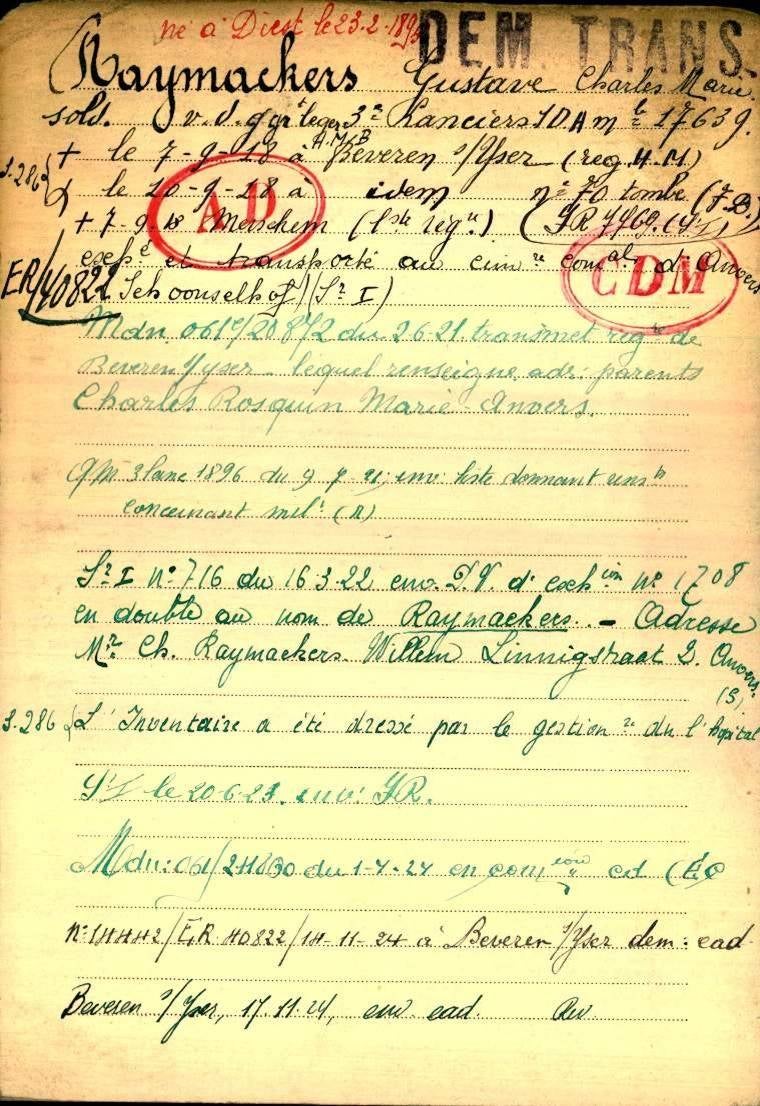 né à Diest le 23-2-189
DEM. TRANS.
Raymackers Gustave Charles Marie.
sold. v.d.g gr leger 3e Lanciers 1DA mle 17639.
A.M.B
+ le 7-9-18 à Beveren s/Yser (reg H.M)
S.286
le 10-9-18 à idem n° 70 tombe (F.B.)
AD
+ 7-9-18 Merckem (liste regre) (FR 7769. (SrI)
exhé et transporté au cimre comal d'Anvers
CDM
ER/40822 Schoonselhof (Sr I)
Mdn 061e/20872 du 2-6-21 transmet regre de
Beveren Yser - lequel renseigne adr. parents
Charles Rosquin Marie - Anvers.
QM 3 lanc 1896 du 9-7-21, env. liste donnant rensts
concernant milre (R)
Sr I n° 716 du 16.3.22 env. P.V. d'exhion n° 1708
en double au nom de Raymackers. - Adresse
Mr Ch. Raymackers. Willem Linnigstraat 2. Anvers.
(S)
S.286 L'Inventaire a été dressé par le gestionre du l'hopital
SrI le 20-6-23. env. FR.
Mdn: 061/21830 du 1-7-24 en comion cd (EC
n° 14442/ER 40822/14-11-24 à Beveren s/Yser dem. ead.
Beveren s/Yser, 17.11.24, env. ead.